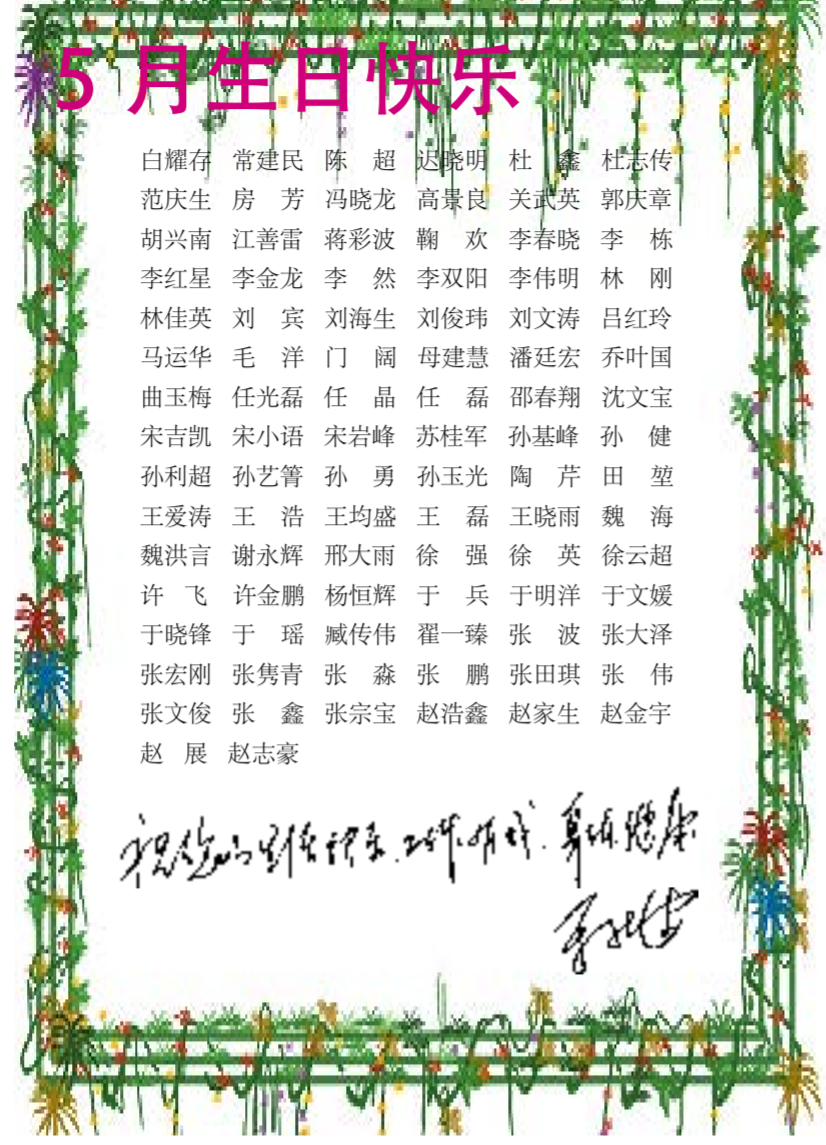 5月生日快乐
白耀存 常建民 陈 超 迟晓明 杜 鑫 杜志传
范庆生 房 芳 冯晓龙 高景良 关武英 郭庆章
胡兴南 江善雷 蒋彩波 鞠 欢 李春晓 李 栋
李红星 李金龙 李 然 李双阳 李伟明 林 刚
林佳英 刘 宾 刘海生 刘俊玮 刘文涛 吕红玲
马运华 毛 洋 门 阔 母建慧 潘廷宏 乔叶国
曲玉梅 任光磊 任 晶 任 磊 邵春翔 沈文宝
宋吉凯 宋小语 宋岩峰 苏桂军 孙基峰 孙 健
孙利超 孙艺箐 孙 勇 孙玉光 陶 芹 田 堃
王爱涛 王 浩 王均盛 王 磊 王晓雨 魏 海
魏洪言 谢永辉 邢大雨 徐 强 徐 英 徐云超
许 飞 许金鹏 杨恒辉 于 兵 于明洋 于文媛
于晓锋 于 瑶 臧传伟 翟一臻 张 波 张大泽
张宏刚 张隽青 张 淼 张 鹏 张田琪 张 伟
张文俊 张 鑫 张宗宝 赵浩鑫 赵家生 赵金宇
赵 展 赵志豪
祝您的生日快乐